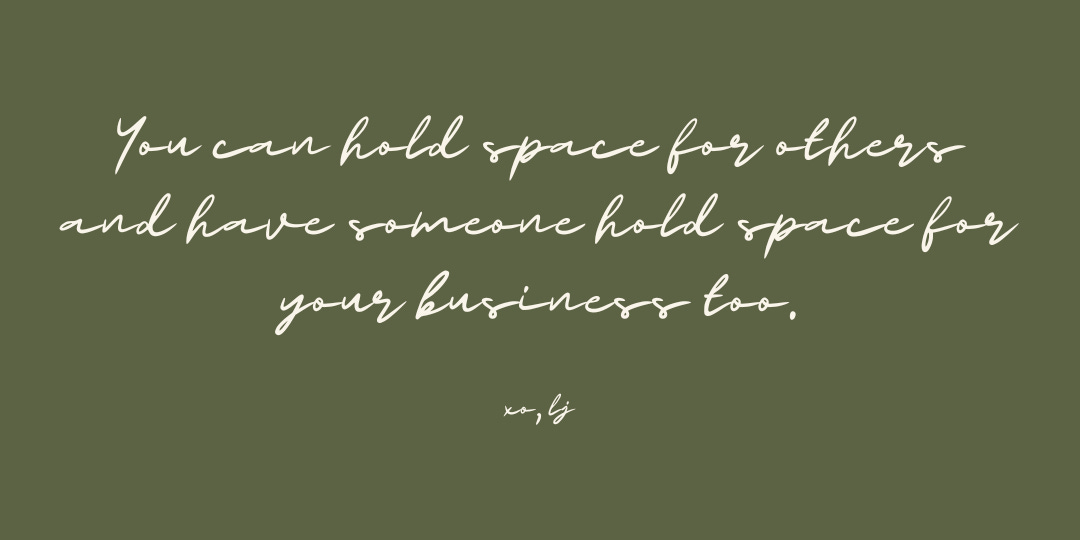 You can hold space for others
and have someone hold space for
your business too.
xo, lj